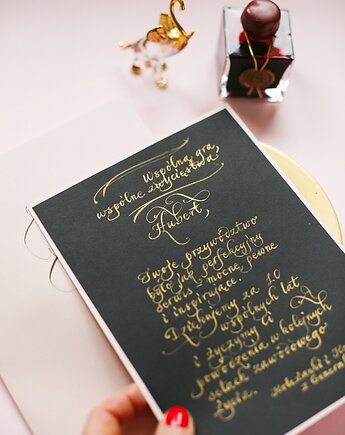 Wspólna gra,
wspólne zwycięstwa,
Hubert,
Twoje przywództwo
było jak perfekcyjny
serwis - mocne, pewne
i inspirujące.
Dziękujemy za 10
wspólnych lat
i życzymy Ci
powodzenia w kolejnych
setach zawodowego
życia.
Koleżanki i
z